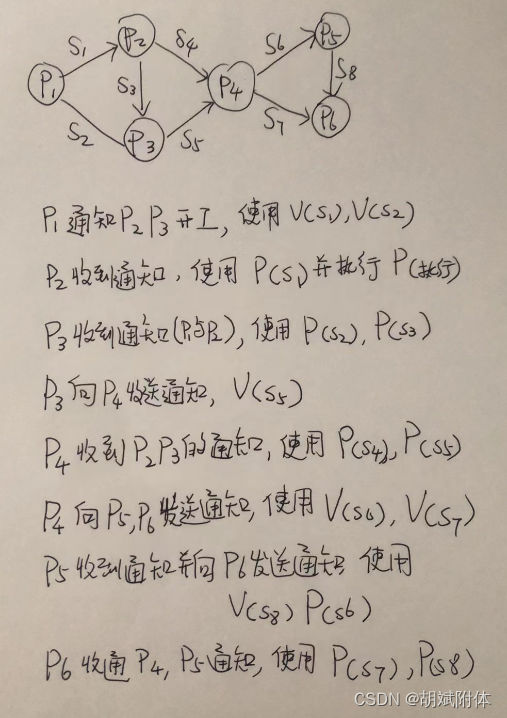 S1
P2
S4
S6
P5
P1
S3
P4
S8
S2
P3
S5
S7
P6
P1通知P2 P3开工, 使用 V(S1), V(S2)
P2收到通知, 使用 P(S1)并执行 P(执行)
P3收到通知(P1与P2), 使用 P(S2), P(S3)
P3向P4发送通知, V(S5)
P4收到P2P3的通知, 使用 P(S4), P(S5)
P4向P5,P6发送通知, 使用 V(S6), V(S7)
P5收到通知并向P6发送通知 使用
V(S8) P(S6)
P6收通P4, P5通知, 使用 P(S7), P(S8)
CSDN @胡斌附体